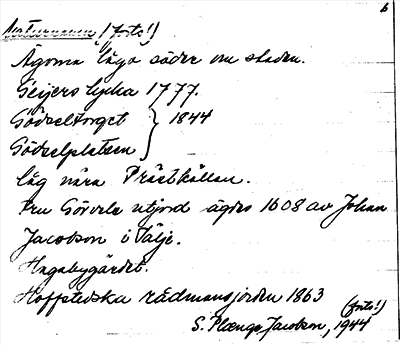 6
Naturnamn (forts!)
Ägorna låga söder om staden.
Geijers lycka 1777.
Gödseltorget } 1844
Gödselplatsen
låg nära Prästkällan.
Fru Görvels utjord ägdes 1608 av Johan
Jacobson i Tälje.
Hagabygärdet.
Hoffstedska rådmansjorden 1863 (forts!)
S. Plænge Jacobson, 1944